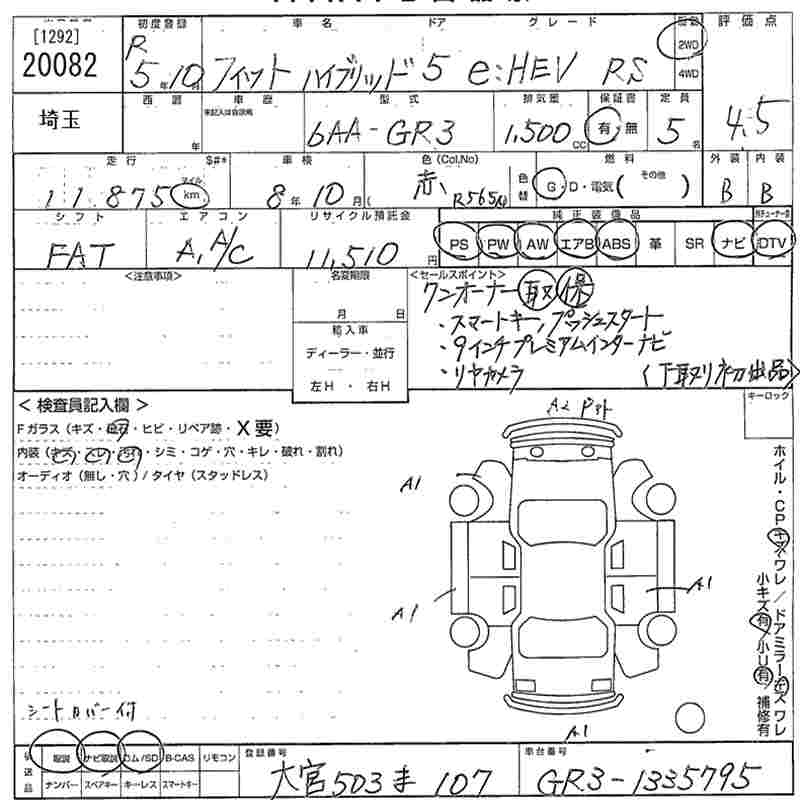 [1292]
20082
埼玉
初度登録 車名 ドア グレード
R5年10月 フィット ハイブリッド 5 e:HEV RS
2WD
4WD
評価点
4.5
西暦 車歴 型式 排気量 保証書 定員
年 未記入は自家用 6AA-GR3 1,500cc 有・無 5名
走行 $#* 車検 色(Col,No) 色替 燃料 外装 内装
11,875 マイル km 8年10月( 赤 R565M G・D・電気( その他 ) B B
シフト エアコン リサイクル預託金 純正装備品
FAT A,A/C 11,510円 PS PW AW エアB ABS 革 SR ナビ DTV
<注意事項>
名変期限
月 日
輸入車
ディーラー・並行
左H・右H
<セールスポイント>
ワンオーナー 取 保
・スマートキー,プッシュスタート
・9インチプレミアムインターナビ
・リヤカメラ (下取り初出品)
キーロック
<検査員記入欄>
Fガラス(キズ・飛石・ヒビ・リペア跡・X要)
内装(キズ・スレ・汚れ・シミ・コゲ・穴・キレ・破れ・割れ)
オーディオ(無し・穴)/タイヤ(スタッドレス)
A2
A1
A1
A1
A1
ホイル・CPキズワレ/ドアミラーキズワレ
小キズ有/小U有/補修有
シートカバー付
後送品 取説 ナビ取説 ロム/SD B-CAS リモコン
ナンバー スペアキー キーレス スマートキー
登録番号
大宮 503 ま 107
車台番号
GR3-1335795